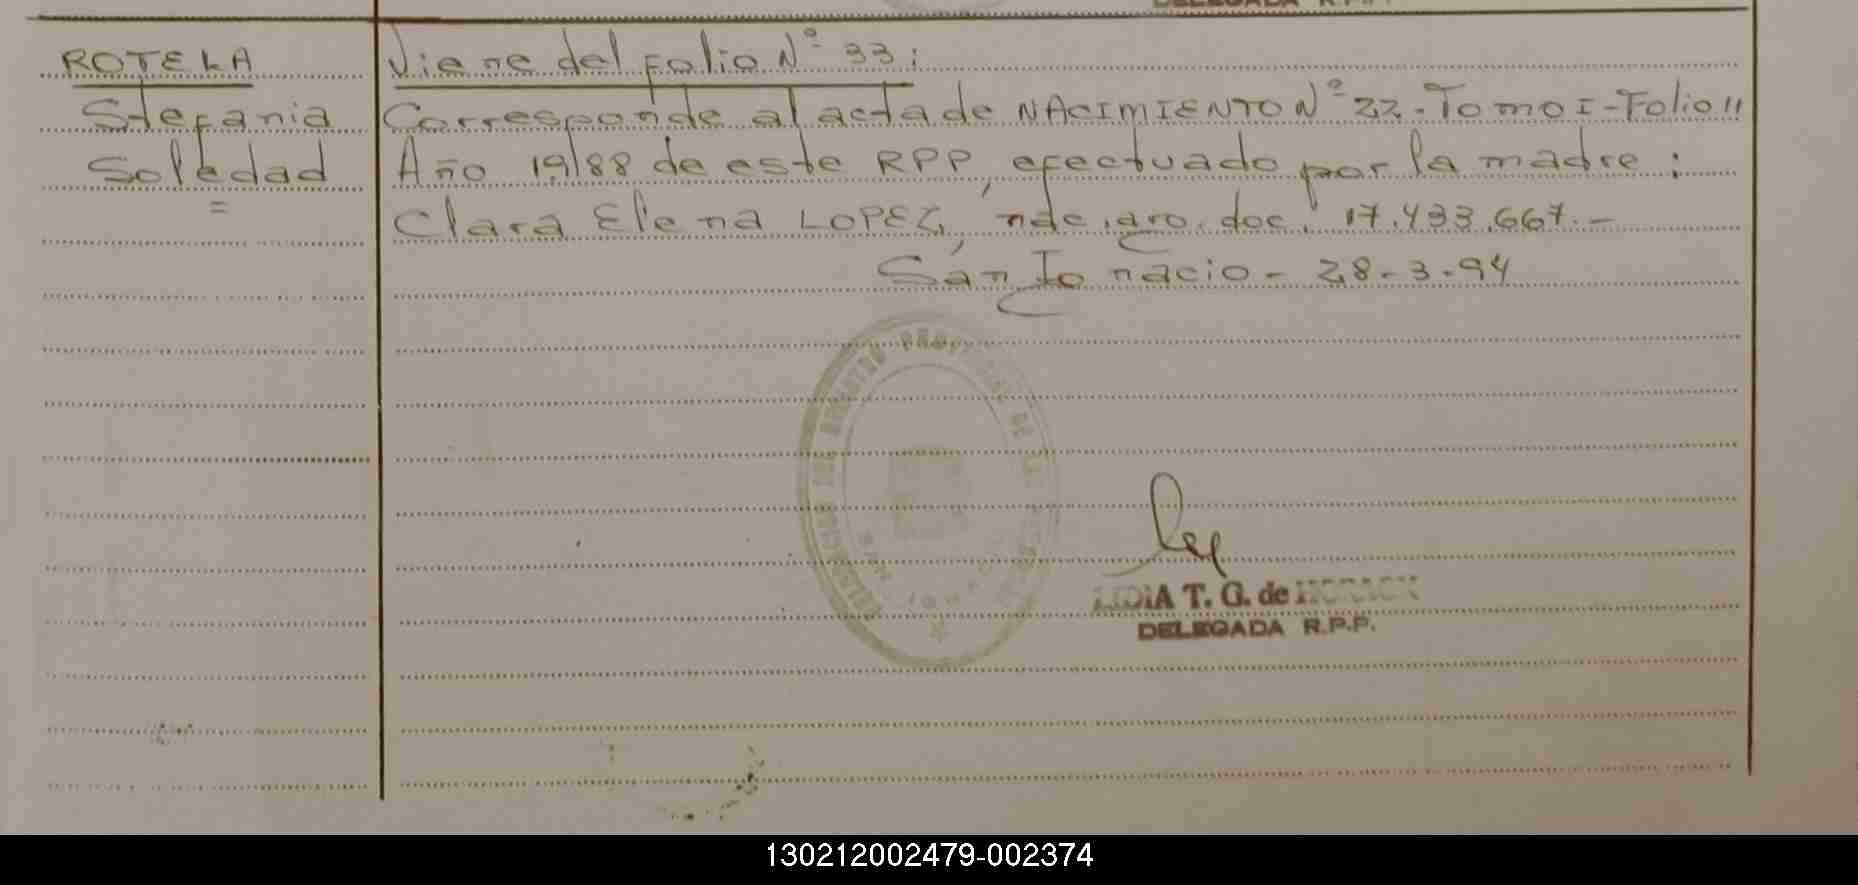 DELEGADA R.P.P.
ROTELA
Stefania
Soledad
=
Viene del Folio Nº 33:
Corresponde al acta de NACIMIENTO Nº 22-Tomo I-Folio 11
Año 1988 de este RPP, efectuado por la madre:
Clara Elena LOPEZ, nac. arg. doc. 17.433.667.-
San Ignacio - 28-3-94
LIDIA T. G. de
DELEGADA R.P.P.
130212002479-002374